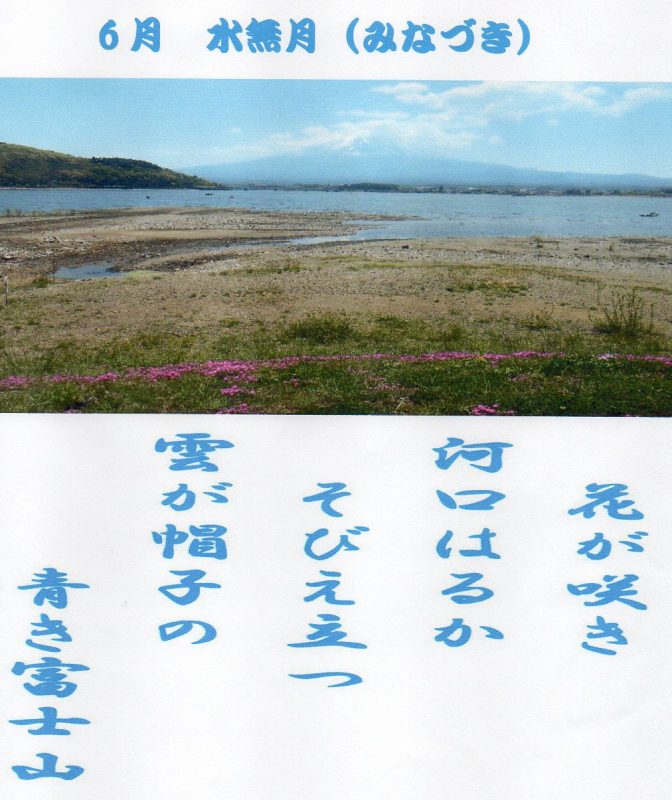 6月 水無月（みなづき）
花が咲き
河口はるか
そびえ立つ
雲が帽子の
青き富士山